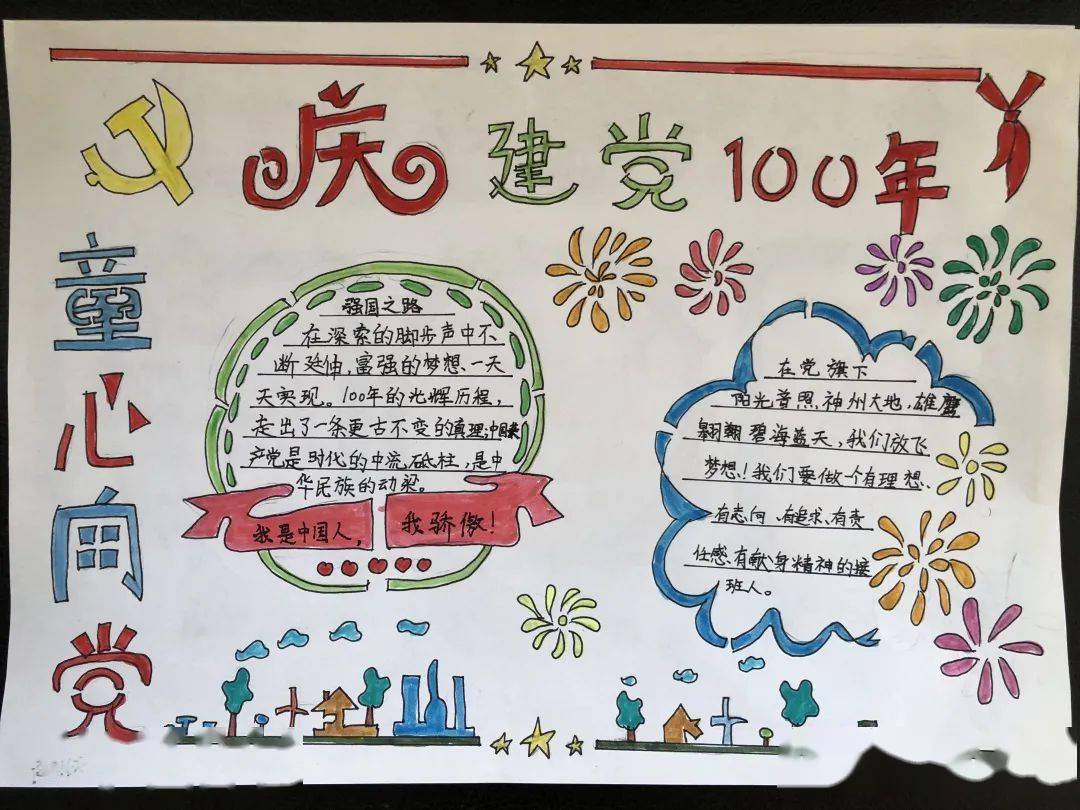 庆建党100年
童心向党
强国之路
在深索的脚步声中不
断延伸,富强的梦想、一天
天实现。100年的光辉历程,
走出了一条更古不变的真理,中国
产党是时代的中流砥柱,是中
华民族的动梁。
我是中国人,我骄傲!
在党旗下
阳光普照,神州大地,雄鹰
翱翔碧海蓝天,我们放飞
梦想!我们要做一个有理想、
有志向、有追求、有责
任感、有献身精神的接
班人。